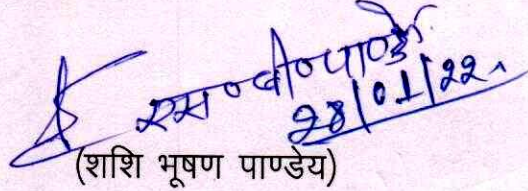 एस०बी०पाण्डे
28/01/22
(शशि भूषण पाण्डेय)